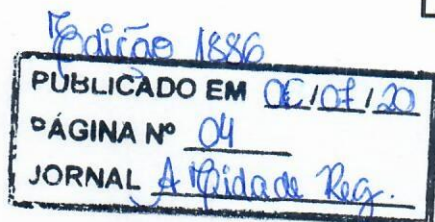 Edição 1886
PUBLICADO EM 06/07/20
PÁGINA Nº 04
JORNAL A Cidade Reg.